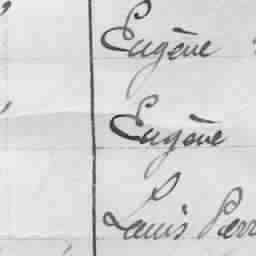 Eugène
Eugène
Louis Pierr